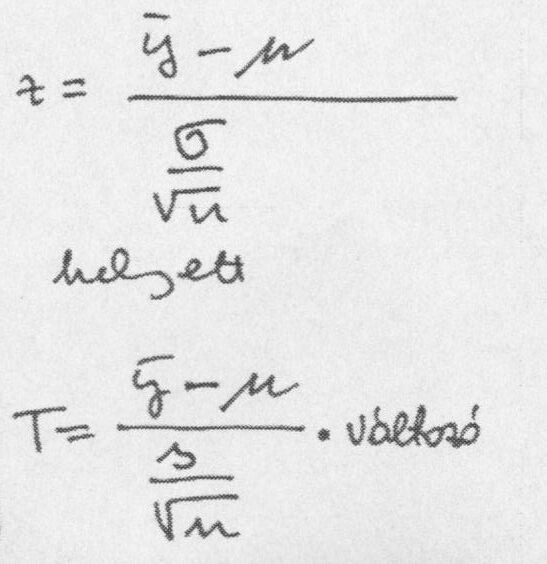 z = (ȳ - μ) / (σ / √n)
helyett
T = (ȳ - μ) / (s / √n) · változó